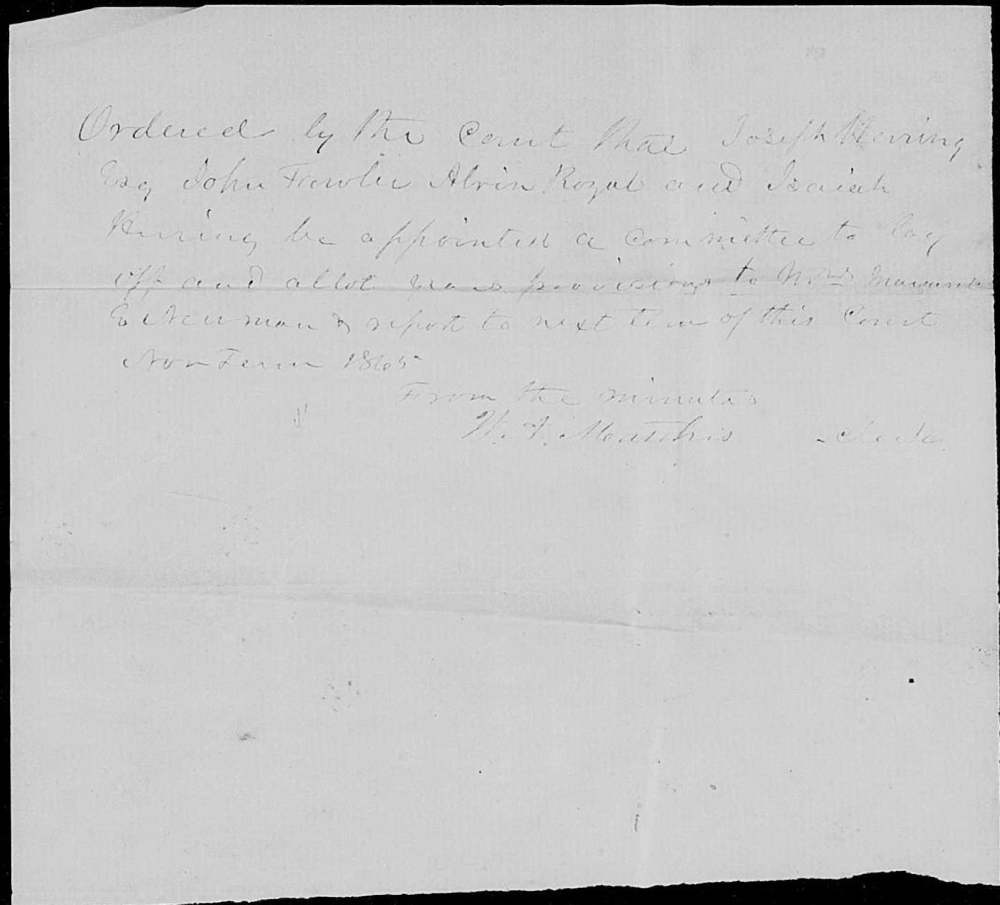 Ordered by the Court that Joseph Herring
Esq John Fowler Alvin Royal and Isaiah
Herring be appointed a committee to lay
off and allot years provisions to Mrs
E Newman & report to next term of this Court
Nov Term 1865
From the minutes
Clerk